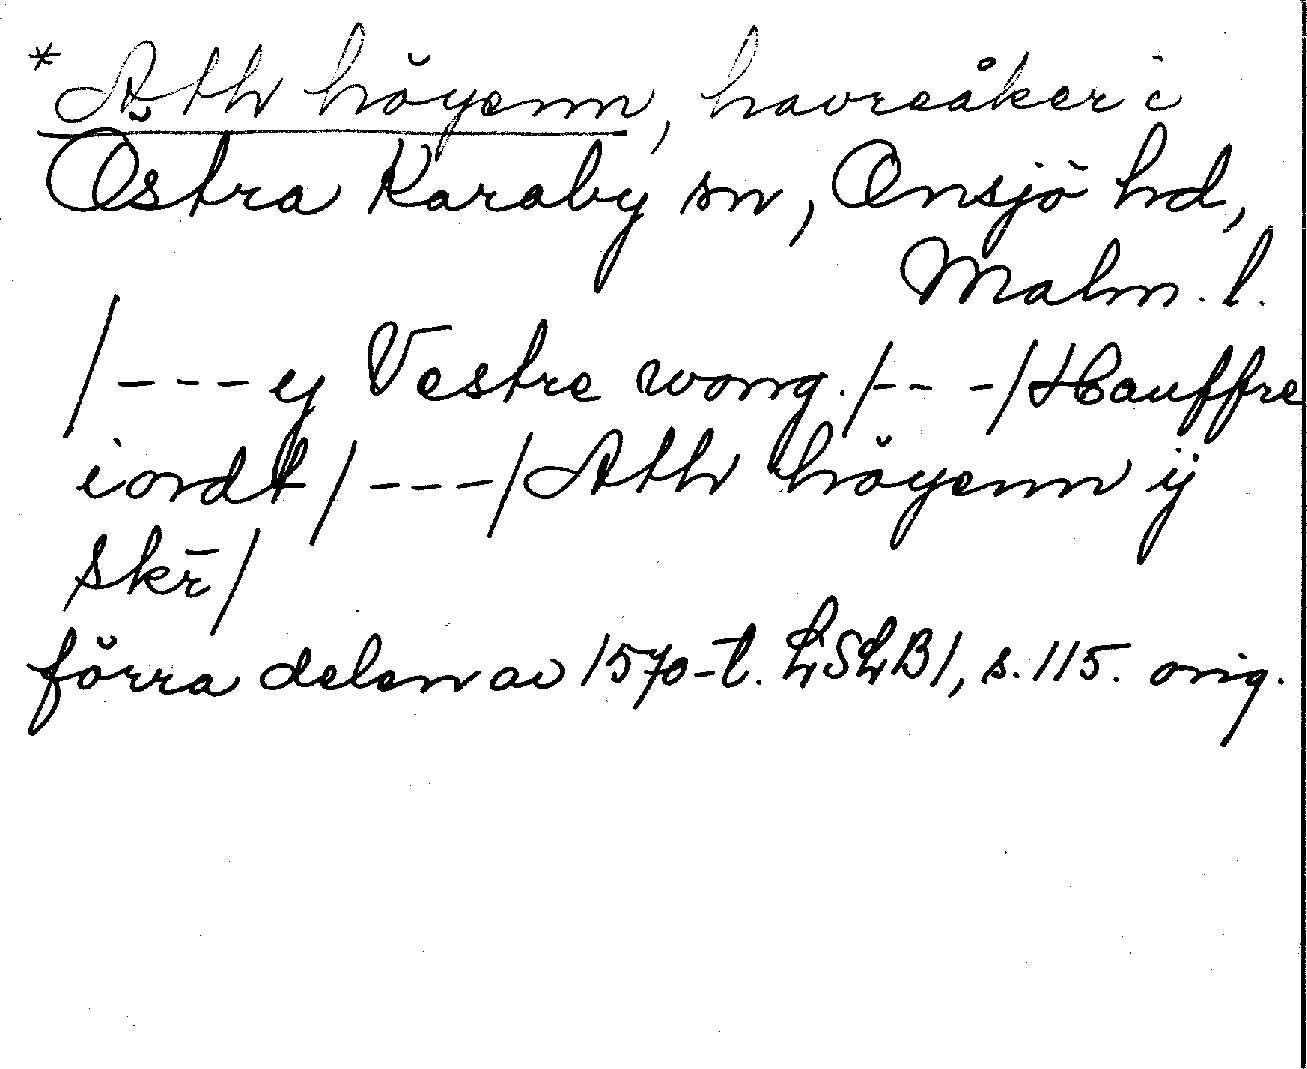 *Ath höyenn, havreåker i
Östra Karaby sn, Onsjö hd,
Malm. l.
/---ey Vestre wong./-- -/Hauffre
iordt/---/Ath höyenn ij
skr̄/
förra delen av 1570-t. LSLB1, s. 115. orig.